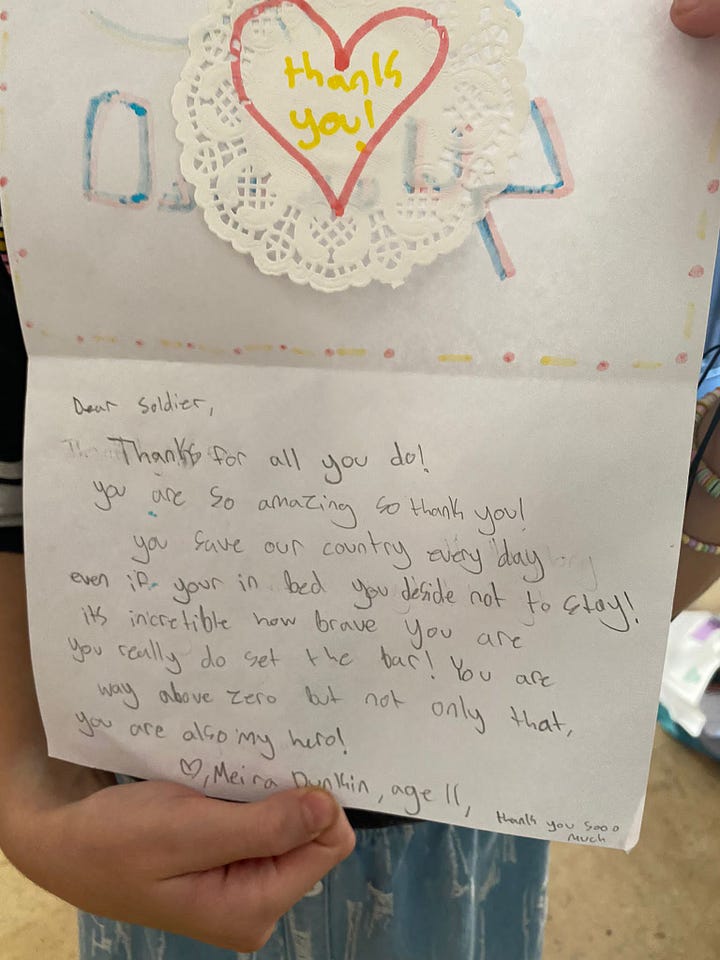 thank
you!
Dear Soldier,
Thanks for all you do!
you are so amazing so thank you!
you save our country every day
even if your in bed you deside not to stay!
its incretible how brave you are
you really do set the bar! You are
way above zero but not only that,
you are also my hero!
♡, Meira Dunkin, age 11,
thank you sooo
much